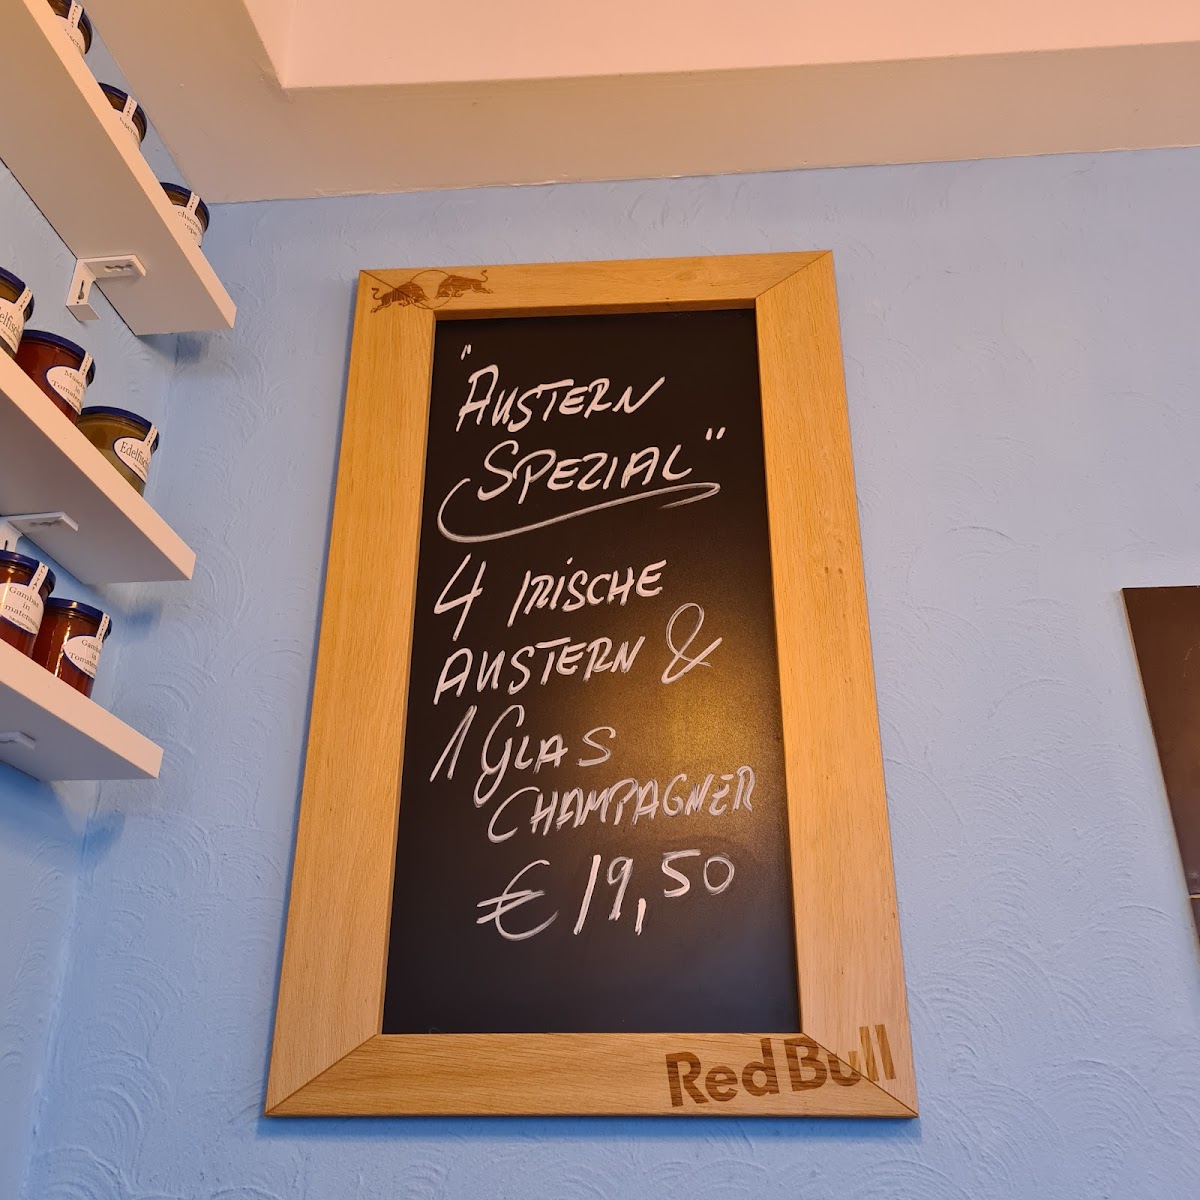 "AUSTERN
SPEZIAL"
4 IRISCHE
AUSTERN &
1 GLAS
CHAMPAGNER
€ 19,50
Red Bull
Edelfisch
in
Gambas
in
Gambas
in